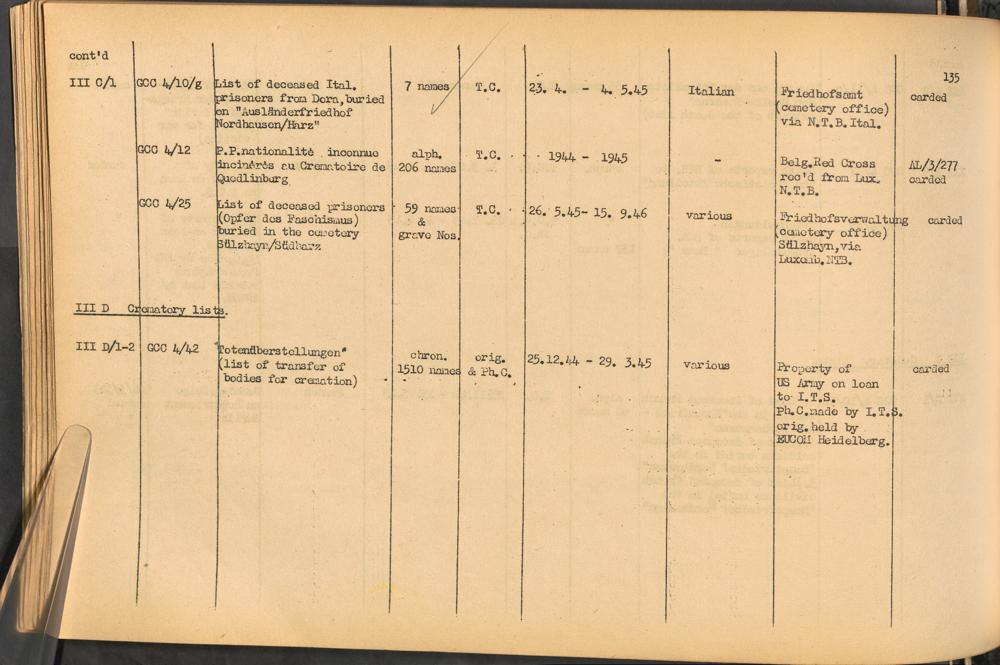 135
cont'd
III C/1 GCC 4/10/g List of deceased Ital. 7 names T.C. 23. 4. - 4. 5.45 Italian Friedhofsamt carded
prisoners from Dora, buried (cemetery office)
on "Ausländerfriedhof via N.T.B. Ital.
Nordhausen/Harz"
GCC 4/12 P.P.nationalité inconnue alph. T.C. 1944 - 1945 - Belg.Red Cross AL/3/277
incinérés au Crematoire de 206 names rec'd from Lux. carded
Quedlinburg N.T.B.
GCC 4/25 List of deceased prisoners 59 names T.C. 26. 5.45- 15. 9.46 various Friedhofsverwaltung carded
(Opfer des Faschismus) & (cemetery office)
buried in the cemetery grave Nos. Sülzhayn, via
Sülzhayn/Südharz Luxemb. NTB.
III D Crematory lists.
III D/1-2 GCC 4/42 "Totenüberstellungen" chron. orig. 25.12.44 - 29. 3.45 various Property of carded
(list of transfer of 1510 names & Ph.C. US Army on loan
bodies for cremation) to I.T.S.
Ph.C.made by I.T.S.
orig. held by
EUCOM Heidelberg.